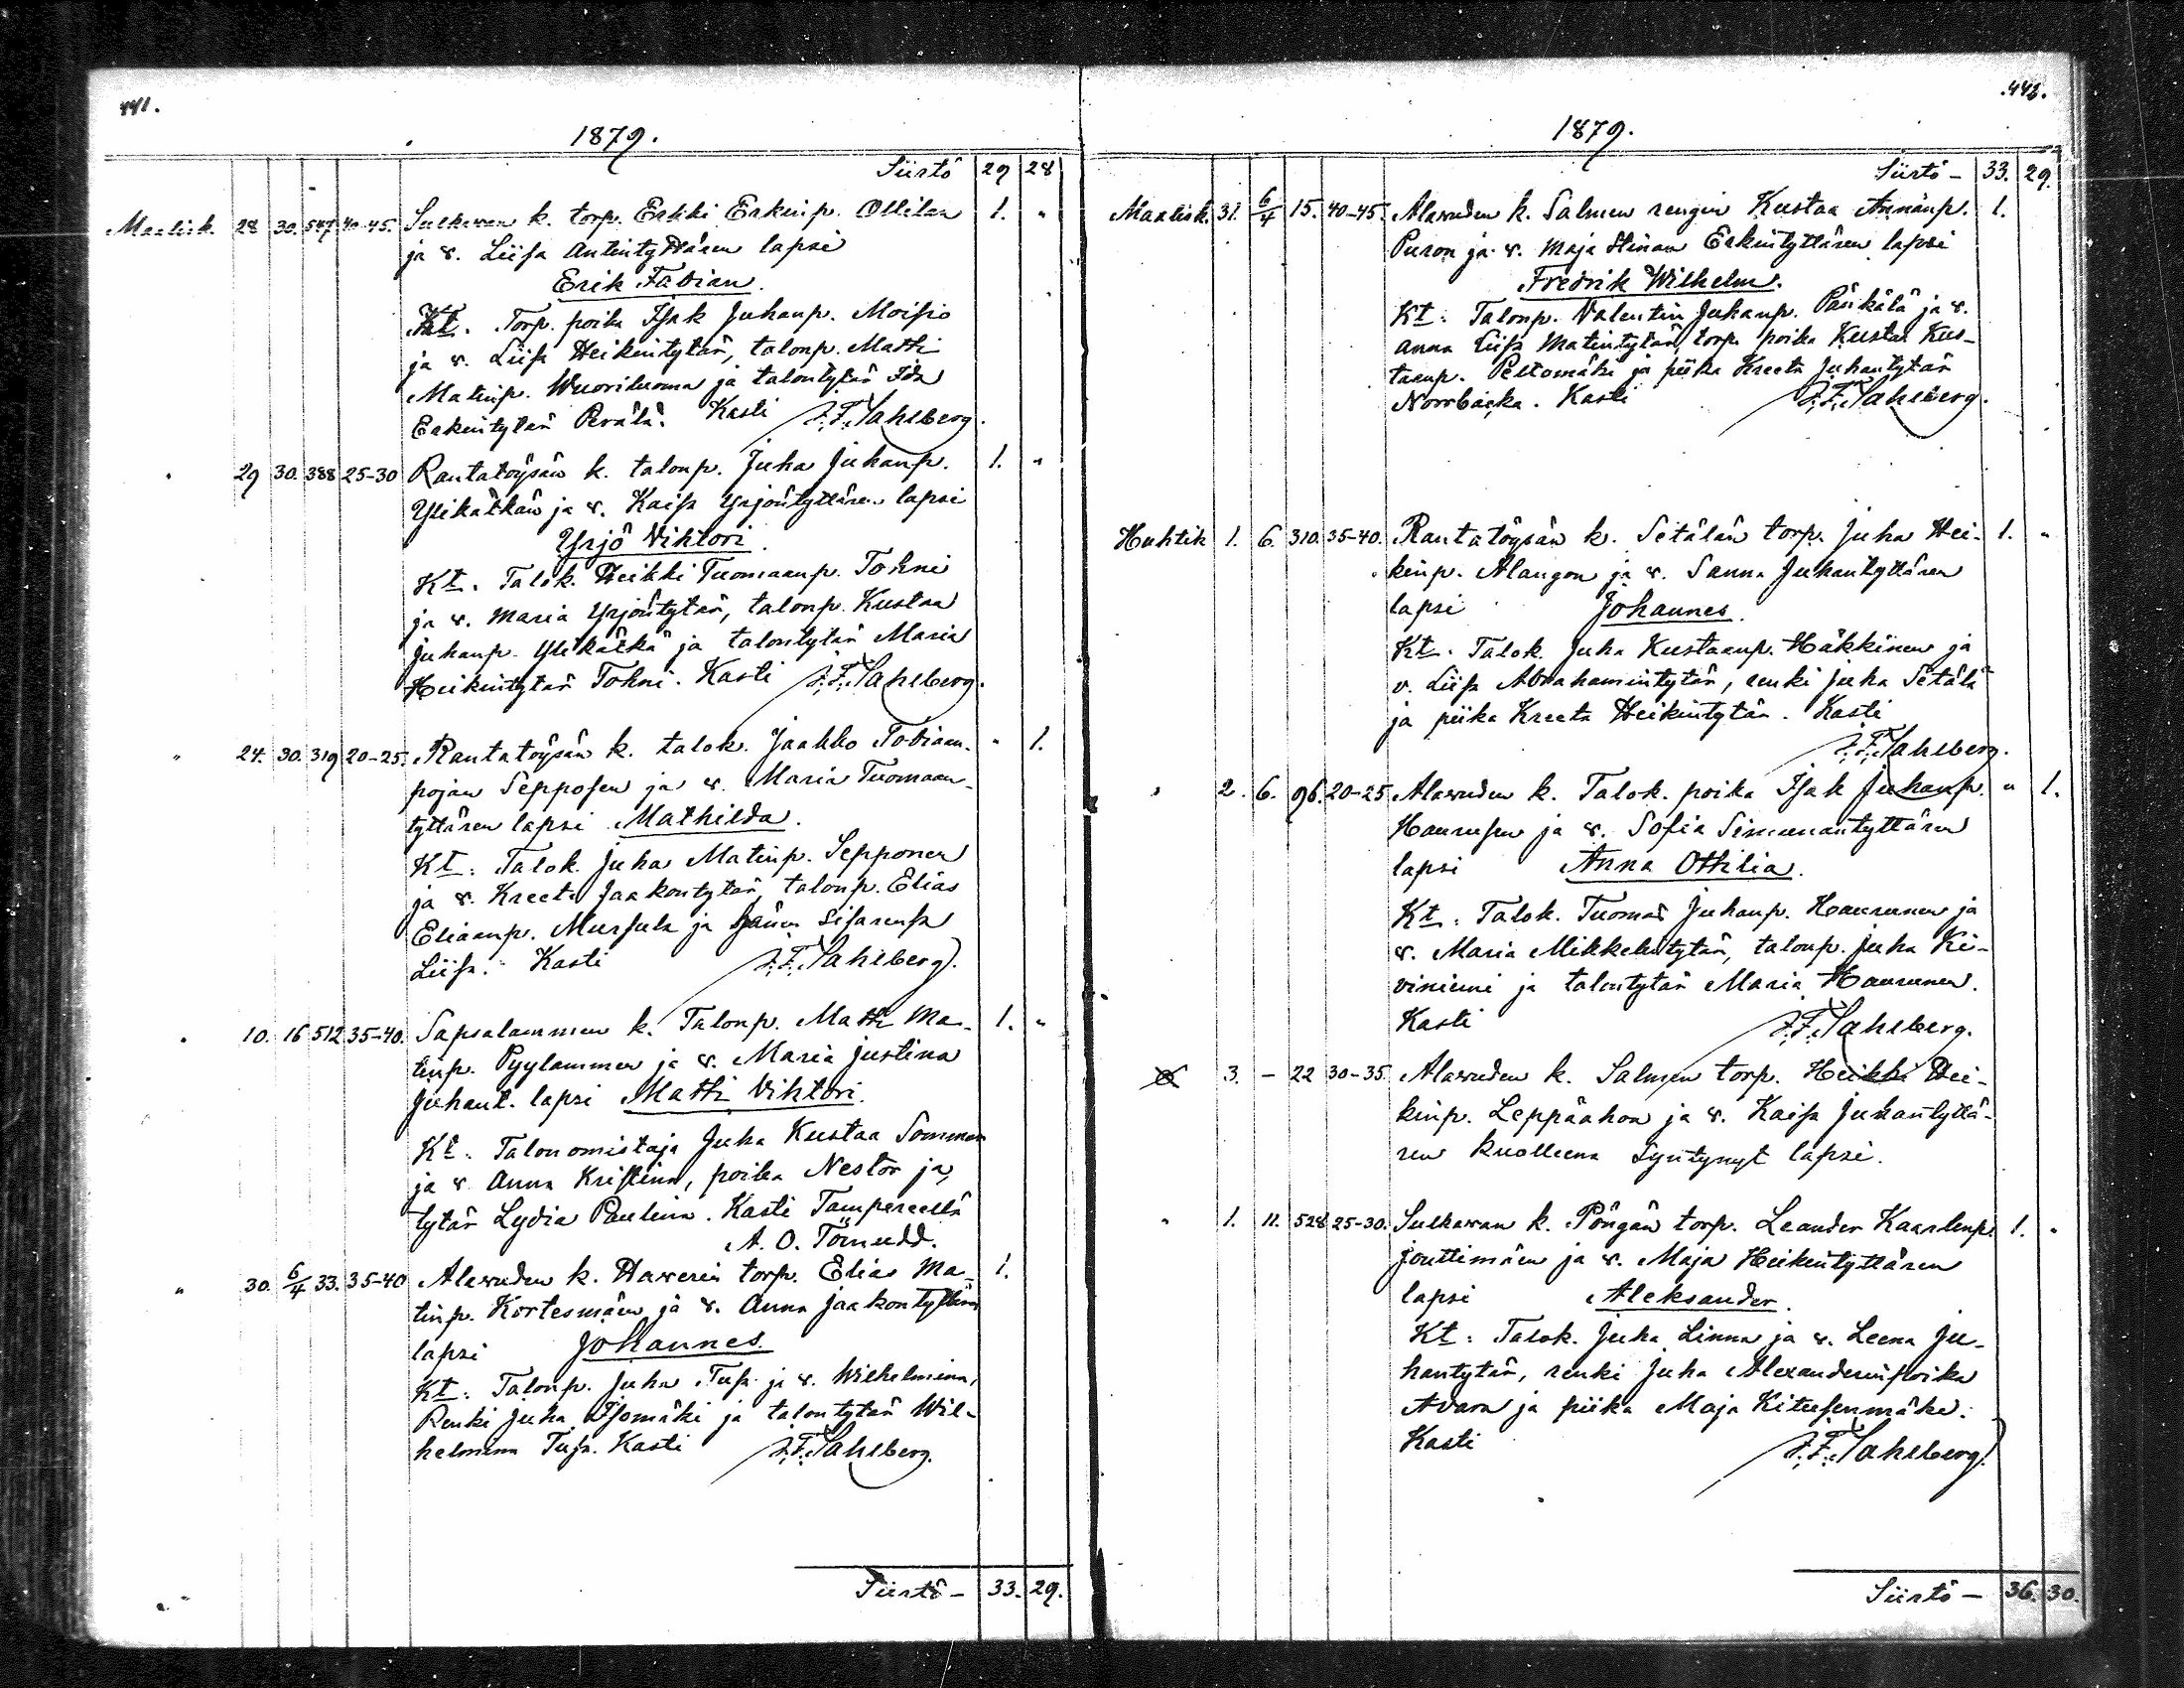 441.
1879.
Siirtö 29 28
Maalisk. 28 30. 547 40-45. Sulkawan k. torp. Erkki Erkinp. Ollilan 1. "
ja v. Liisa Antintyttären lapsi
Erik Fabian.
Kt. Torp. poika Isak Juhanp. Moisio
ja v. Liisa Heikintytär, talonp. Matti
Matinp. Wuoriluoma ja talontytär Ida
Erkintytär Perälä. Kasti J. F. Sahlberg.
" 29 30. 388 25-30 Rantatöysän k. talonp. Juha Juhanp. 1. "
Ylikätkän ja v. Kaisa Yrjöntyttären lapsi
Yrjö Viktori.
Kt. Talok. Heikki Tuomaanp. Tohni
ja v. Maria Yrjöntytär, talonp. Kustaa
Juhanp. Ylikätkä ja talontytär Maria
Heikintytär Tohni. Kasti J. F. Sahlberg.
" 24. 30. 319 20-25. Rantatöysän k. talok. Jaakko Tobiaan- " 1.
pojan Sepposen ja v. Maria Tuomaan-
tyttären lapsi Mathilda.
Kt: Talok. Juha Matinp. Sepponen
ja v. Kreeta Jaakontytär, talonp. Elias
Eliaanp. Mursula ja hänen sisarensa
Liisa. Kasti J. F. Sahlberg.
" 10. 16 512 35-40. Sapsalammen k. Talonp. Matti Ma- 1. "
tinp. Pyylammen ja v. Maria Justina
Juhant. lapsi Matti Vihtori.
Kt. Talonomistaja Juha Kustaa Sommer
ja v. Anna Kristina, poika Nestor ja
tytär Lydia Paulina. Kasti Tampereella
A. O. Törnudd.
" 30. 6/4 33. 35-40 Alawuden k. Haweren torp. Elias Ma- 1.
tinp. Kortesmäen ja v. Anna Jaakontyttären
lapsi Johannes.
Kt: Talonp. Juha Tusa ja v. Wilhelmina,
Renki Juha Isomäki ja talontytär Wil-
helmina Tusa. Kasti J. F. Sahlberg.
Siirtö- 33. 29.
442.
1879.
Siirtö- 33. 29.
Maalisk. 31. 6/4 15. 40-45. Alawuden k. Salmen rengin Kustaa Annanp. 1.
Puron ja v. Maja Stinan Erkintyttären lapsi
Fredrik Wilhelm.
Kt: Talonp. Valentin Juhanp. Pänkälä ja v.
Anna Liisa Matintytär, torp. poika Kustaa Kus-
taanp. Peltomäki ja piika Kreeta Juhantytär
Norrbacka. Kasti J. F. Sahlberg.
Huhtik 1. 6. 310. 35-40. Rantatöysän k. Setälän torp. Juha Hei- 1. "
kinp. Alangon ja v. Sanna Juhantyttären
lapsi Johannes.
Kt. Talok. Juha Kustaanp. Häkkinen ja
v. Liisa Abrahamintytär, renki Juha Setälä
ja piika Kreeta Heikintytär. Kasti
J. F. Sahlberg.
" 2. 6. 96. 20-25 Alawuden k. Talok. poika Isak Juhanp. " 1.
Haurusen ja v. Sofia Simunantyttären
lapsi Anna Ottilia.
Kt: Talok. Tuomas Juhanp. Haurunen ja
v. Maria Mikkelintytär, talonp. Juha Ki-
viniemi ja talontytär Maria Haurunen.
Kasti J. F. Sahlberg.
3. - 22 30-35. Alawuden k. Salmen torp. Heikki Hei-
kinp. Leppäahon ja v. Kaisa Juhantyttä-
ren kuolleena syntynyt lapsi.
" 1. 11. 528 25-30. Sulkawan k. Pöngän torp. Leander Kaarlenp. 1. "
Jouttimäen ja v. Maja Heikintyttären
lapsi Aleksander.
Kt: Talok. Juha Linna ja v. Leena Ju-
hantytär, renki Juha Alexanderinpoika
Avara ja piika Maja Kitusenmäki.
Kasti J. F. Sahlberg.
Siirtö- 36. 30.